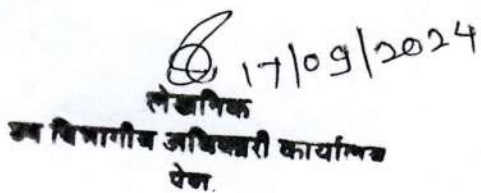 17/09/2024
लेखनिक
उप विभागीय अधिकारी कार्यालय
पेण